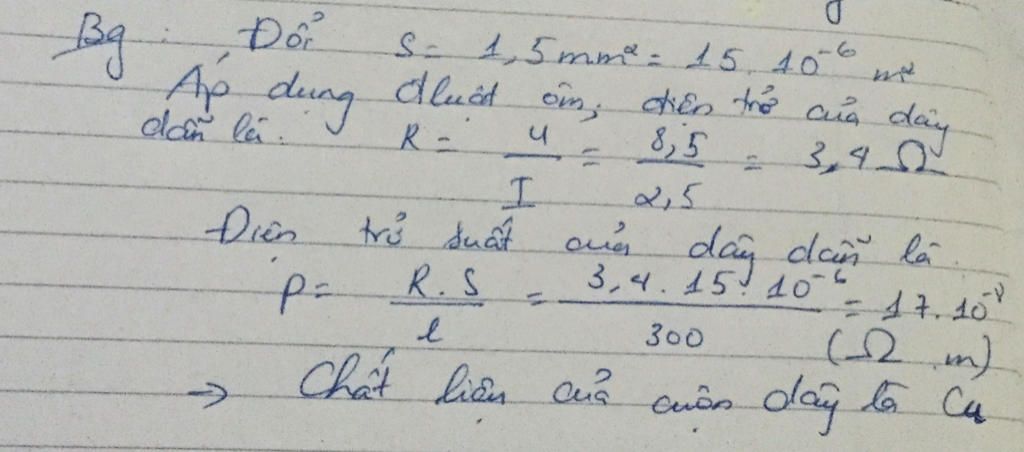 Bg : Đổi S = 1,5mm² = 15.10⁻⁶ m²
Áp dụng đluật ôm, điện trở của dây
dẫn là. R = U/I = 8,5/2,5 = 3,4 Ω
Điện trở suất của dây dẫn là.
ρ = R.S/l = 3,4.15.10⁻⁶/300 = 17.10⁻⁸
(Ω m)
→ Chất liệu của cuộn dây là Cu